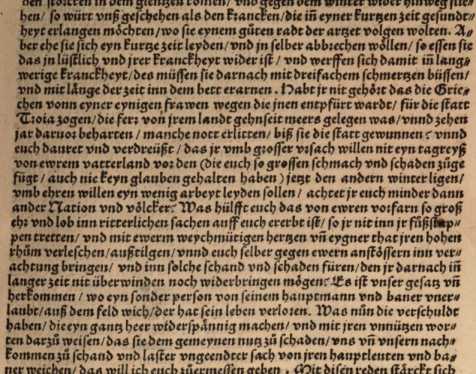 hen / so würt vnß geschehen als den krancken / die iñ eyner kurtzen zeit gesundt
heyt erlangen möchten / wo sie eynem gůten radt der artzet volgen wolten. A⸗
ber ehe sie sich eyn kurtze zeit leyden / vnd jn selber abbrechen wöllen / so essen sie
das jn lüstlich vnd jrer kranckheyt wider ist / vnd werffen sich damit iñ lang⸗
werige kranckheyt / des müssen sie darnach mit dreifachem schmertzen büssen /
vnd mit länge der zeit inn dem bett erarnen. Habt jr nit gehört das die Grie⸗
chen vonn eyner eynigen frawen wegen die jnen entpfürt wardt / für die statt
Troia zogen / die ferr von jrem landt gehn seit meers gelegen was / vnnd zehen
jar daruor beharten / manche nott erlitten / biß sie die statt gewunnen? vnnd
euch dauret vnd verdreüßt / das jr vmb grosser vrsach willen nit eyn tagreyß
von ewrem vatterland vor den (die euch so grossen schmach vnd schaden zůge
fügt / auch nie keyn glauben gehalten haben) jetz den andern winter ligen /
vmb ehren willen eyn wenig arbeyt leyden sollen / achtet jr euch minder dann
ander Nation vnd völcker? Was hülfft euch das von ewren vorfarn so groß
ehr vnd lob inn ritterlichen sachen auff euch ererbt ist / so jr nit inn jr fůßstap⸗
pen tretten / vnd mit ewerm weychmütigen hertzen vñ eygner that jren hohen
rhům verleschen / außtilgen / vnnd euch selber gegen ewern anstössern inn ver⸗
achtung bringen / vnd inn solche schand vnd schaden füren / den jr darnach iñ
langer zeit nit überwinden noch widerbringen mögen? Es ist vnser gesatz vñ
herkommen / wo eyn sonder person von seinem hauptmann vnd baner vner⸗
laubt / auß dem feld wich / der hat sein leben verloren. Was nůn die verschuldt
haben / die eyn gantz heer widerspännig machen / vnd mit jren vnnützen wor⸗
ten darzů weisen / das sie dem gemeynen nutz zů schaden / vns vñ vnsern nach⸗
kommen zů schand vnd laster vngeendter sach von jren hauptleuten vnd ba⸗
ner weichen / das will ich euch zůermessen geben. Mit disen reden stärckt sich